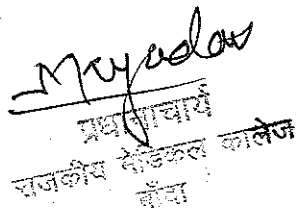 Mryadav
प्रधानाचार्य
राजकीय मेडिकल कालेज
बाँदा